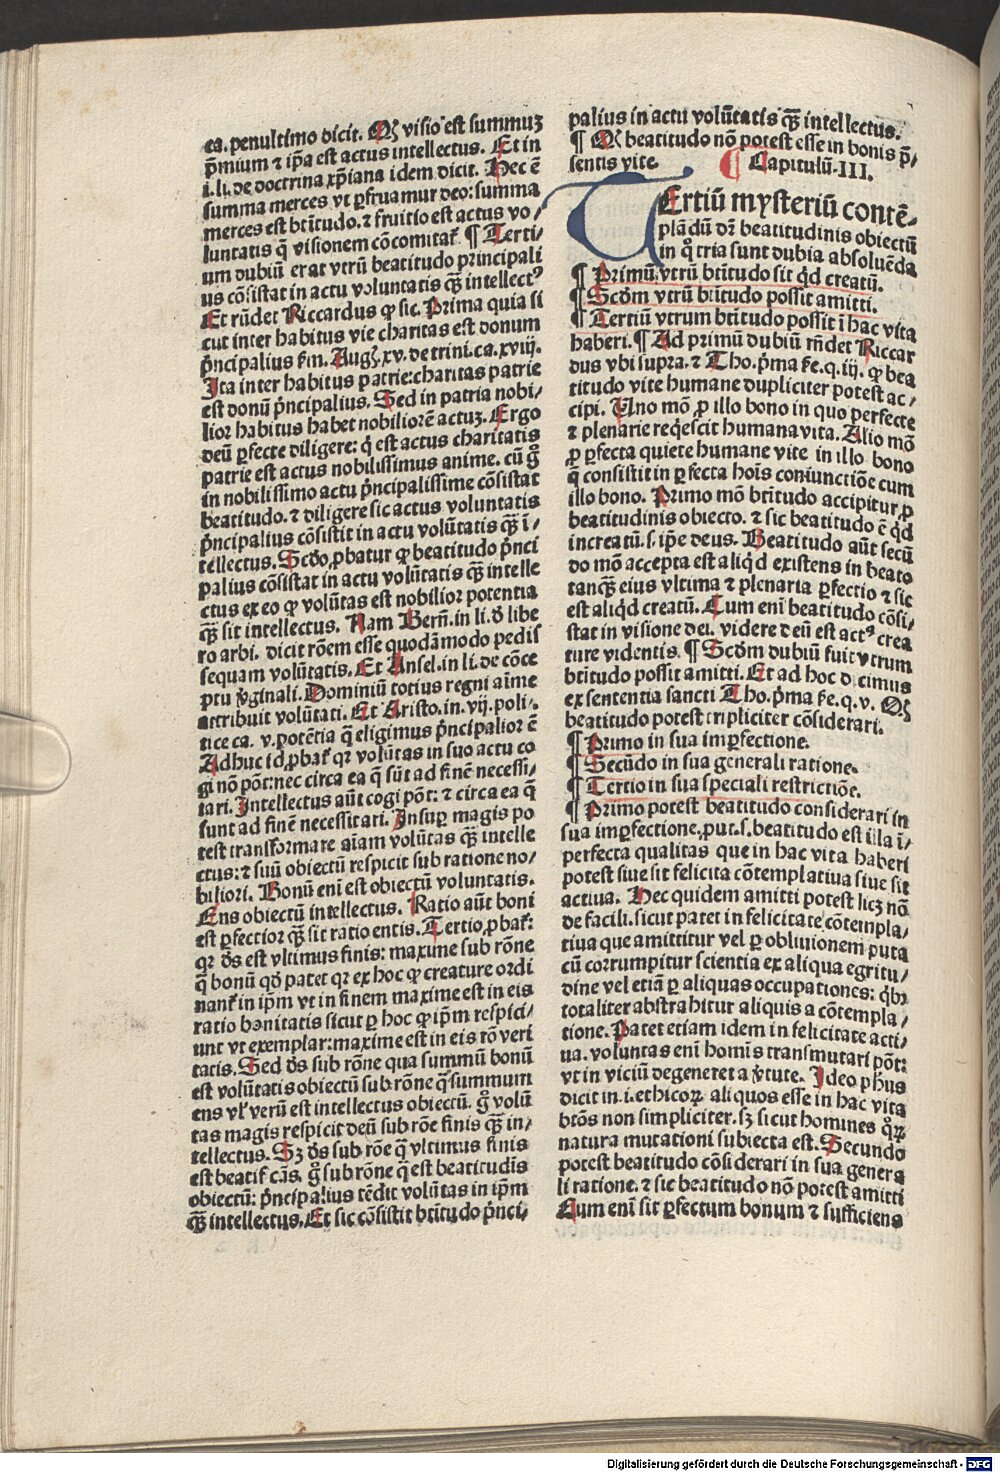 ca. penultimo dicit. Qꝫ visio est summuꝫ
p̄mium ⁊ ip̄a est actus intellectus. Et in
i. li. de doctrina xp̄iana idem dicit. Hec ē
summa merces vt ꝑfruamur deo: summa
merces est btītudo. ⁊ fruitio est actus vo/
luntatis q̄ visionem cōcomitat᷑. ¶ Terti/
um dubiū erat vtrū beatitudo principali
us cōsistat in actu voluntatis qꝫ̄ intellectꝰ
Et rn̄det Riccardus ꝙ sic. Prima quia si
cut inter habitus vie charitas est donum
pͥncipalius fm̄. Augꝫ. xv. de trini. ca. xviij.
Ita inter habitus patrie: charitas patrie
est donū pͥncipalius. Sed in patria nobi/
lior habitus habet nobiliorē actuꝫ. Ergo
deū ꝑfecte diligere: q̇ est actus charitatis
patrie est actus nobilissimus anime. cū g̊
in nobilissimo actu pͥncipalissime cōsistat
beatitudo. ⁊ diligere sic actus voluntatis
pͥncipalius cōsistit in actu volūtatis qꝫ̄ ī/
tellectus. Scdo, ꝓbatur ꝙ beatitudo pͥnci
palius cōsistat in actu volūtatis qꝫ̄ intelle
ctus ex eo ꝙ volūtas est nobilior potentia
qꝫ̄ sit intellectus. Nam Bern̄. in li. ď libe
ro arbi. dicit rōem esse quodāmodo pedis
sequam volūtatis. Et Ansel. in li. de cōce
ptu v̓ginali. Dominiū totius regni aīme
attribuit volūtati. Et Aristo. in. vij. poli/
tice ca. v. potētia q̄ eligimus pͥncipalior ē
Adhuc id ꝓbat᷑ qꝛ volūtas in suo actu co
gi nō pōt: nec circa ea q̄ sūt ad finē necessi/
tari. Intellectus aūt cogi pōt: ⁊ circa ea q̄
sunt ad finē necessitari. Insuꝑ magis po
test transformare aīam volūtas qꝫ̄ intelle
ctus: ⁊ suū obiectū respicit sub ratione no/
biliori. Bonū enī est obiectū voluntatis.
Ens obiectū intellectus. Ratio aūt boni
est ꝑfectior qꝫ̄ sit ratio entis. Tertio, ꝓbat᷑:
qꝛ ds̄ est vltimus finis: maxime sub rōne
q̄ bonū qd̄ patet qꝛ ex hoc ꝙ creature ordi
nant᷑ in ip̄m vt in finem maxime est in eis
ratio bonitatis sicut ꝑ hoc ꝙ ip̄m respici/
unt vt exemplar: maxime est in eis rō veri
tatis. Sed ds̄ sub rōne qua summū bonū
est volūtatis obiectū sub rōne q̄ summum
ens vl̓ verū est intellectus obiectū. g̊ volū
tas magis respicit deū sub rōe finis qꝫ̄ in/
tellectus. Sꝫ ds̄ sub rōe q̄ vltimus finis
est beatificās. g̊ sub rōne q̄ est beatitudīs
obiectū: pͥncipalius tēdit volūtas in ip̄m
qꝫ̄ intellectus. Et sic cōsistit btītudo pͥnci/
palius in actu volūtatis qꝫ̄ intellectus.
¶ Qꝫ beatitudo nō potest esse in bonis p̄/
sentis vite. ¶ Capitulū. III.
TErtiū mysteriū contē/
plādū dꝫ̄ beatitudinis obiectū
in q̊ tria sunt dubia absoluēda
¶ Primū vtrū btītudo sit qͥd creatū.
¶ Scdm vtrū btītudo possit amitti.
¶ Tertiū vtrum btītudo possit ī hac vita
haberi. ¶ Ad primū dubiū rn̄det Riccar
dus vbi supra. ⁊ Tho. pͥma se. q. iij. ꝙ bea
titudo vite humane dupliciter potest ac/
cipi. Uno mō ꝓ illo bono in quo ꝑfecte
⁊ plenarie reqͥescit humana vita. Alio mō
ꝓ ꝑfecta quiete humane vite in illo bono
q̄ consistit in ꝑfecta hoīs coniunctiōe cum
illo bono. Primo mō btītudo accipitur, ꝓ
beatitudinis obiecto. ⁊ sic beatitudo ē qͥd
increatū. s. ip̄e deus. Beatitudo aūt secū
do mō accepta est aliqͥd existens in beato
tanqꝫ̄ eius vltima ⁊ plenaria ꝑfectio ⁊ sic
est aliqͥd creatū. Cum enī beatitudo cōsi/
stat in visione dei. videre deū est actꝰ crea
ture videntis. ¶ Scdm dubiū fuit vtrum
btītudo possit amitti. Et ad hoc dicimus
ex sententia sancti Tho. pͥma se. q. v. Qꝫ
beatitudo potest tripliciter cōsiderari.
¶ Primo in sua imꝑfectione.
¶ Secūdo in sua generali ratione.
¶ Tertio in sua speciali restrictiōe.
¶ Primo potest beatitudo considerari in
sua imꝑfectione, put. s. beatitudo est illa ī/
perfecta qualitas que in hac vita haberi
potest siue sit felicita cōtemplatiua siue sit
actiua. Hec quidem amitti potest licꝫ nō
de facili. sicut patet in felicitate cōtempla/
tiua que amittitur vel ꝑ obliuionem puta
cū corrumpitur scientia ex aliqua egritu/
dine vel etiā ꝑ aliquas occupationes: qͥbꝫ
totaliter abstrahitur aliquis a cōtempla/
tione. Patet etiam idem in felicitate acti/
ua. voluntas enī homīs transmutari pōt:
vt in viciū degeneret a v̓tute. Ideo phūs
dicit in. i. ethicoꝝ aliquos esse in hac vita
btōs non simpliciter. sꝫ sicut homines q̊ꝝ
natura mutationi subiecta est. Secundo
potest beatitudo cōsiderari in sua genera
li ratione. ⁊ sic beatitudo nō potest amitti
Cum enī sit ꝑfectum bonum ⁊ sufficiens
Digitalisierung gefördert durch die Deutsche Forschungsgemeinschaft - DFG